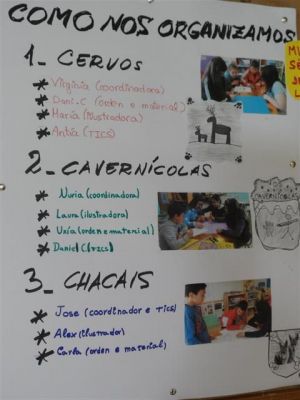 COMO NOS ORGANIZAMOS
1_ CERVOS
* Virginia (coordinadora)
* Dani.C (orden e material)
* María (ilustradora)
* Antía (TICS)
2_ CAVERNÍCOLAS
* Nuria (coordinadora)
* Laura (ilustradora)
* Uxía (orden e material)
* Daniel (TICS)
CAVERNÍCOLAS
3_ CHACAIS
* Jose (coordinador e TICS)
* Alex (ilustrador)
* Carla (orden e material)